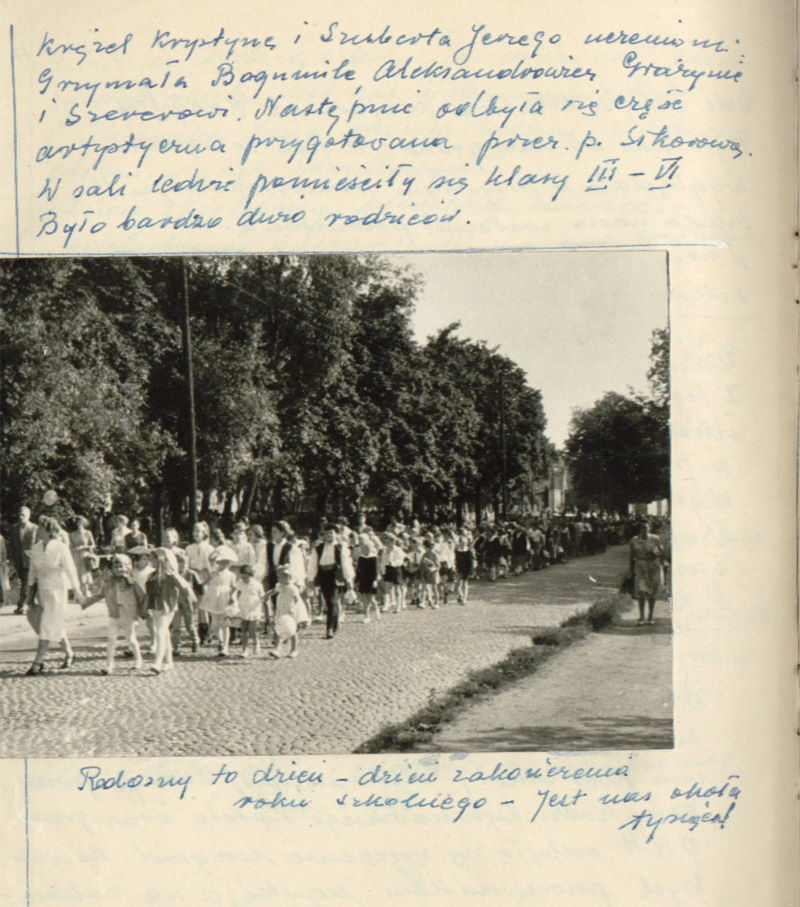 Krężel Krystynę i Szuberta Jerzego uczeniami:
Grzymała Bogumile, Aleksandrowicz Grażynie
i Szererowi. Następnie odbyła się część
artystyczna przygotowana przez p. Sikorową.
W sali ledwie pomieściły się klasy III – VI
Było bardzo dużo rodziców.
Radosny to dzień – dzień zakończenia
roku szkolnego – Jest nas około
tysiąca!